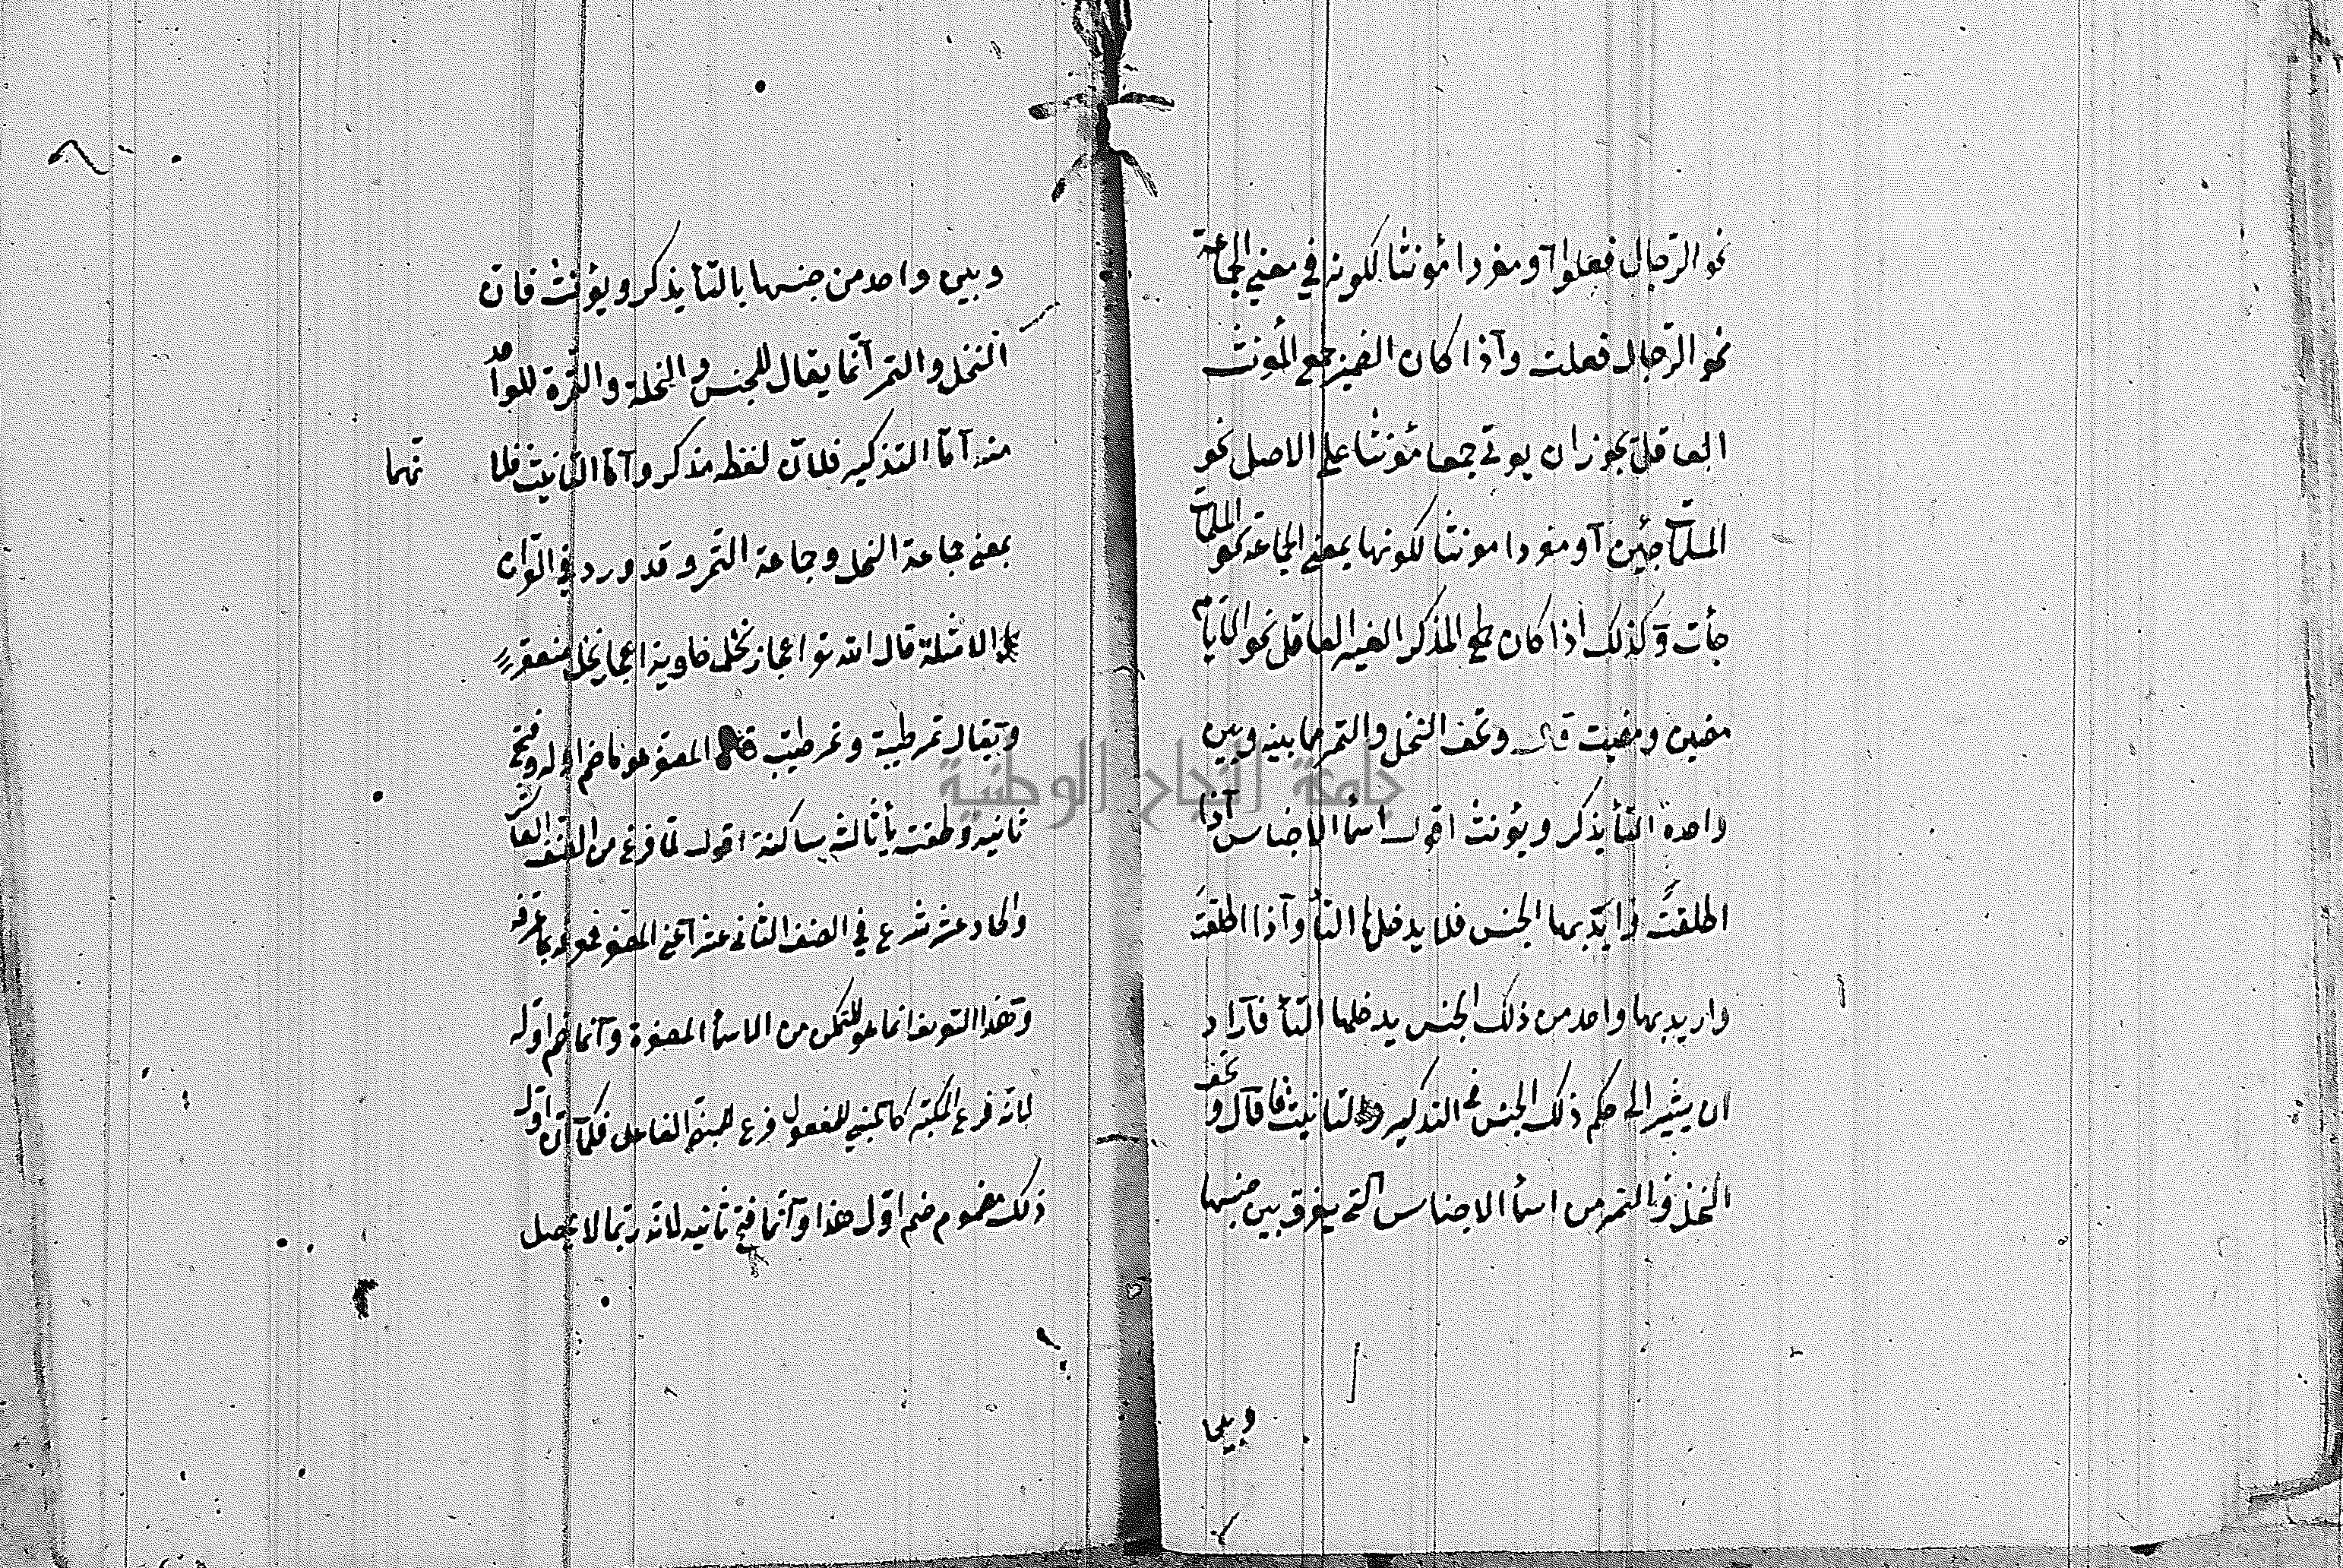 نحو الرّجال فعلوا آو مفردا مؤنثا لكونه في معني الجماعة
نحو الرّجال فعلت وآذا كان الضمير جمع المؤنث
العاقل يجوز ان يوتي جمعا مؤنثا على الاصل نحو
المسلمات جئين آو مفردا مونثا لكونها بمعني الجماعة نحو المسلمات
جأت وكذلك اذا كان جمع المذكر الغير العاقل نحو الايام
مضين ومضيت قال ونحو النخل والتمر مما بينه وبين
واحدة التأ يذكر ويؤنث اقول اسمأ الاجناس آذا
اطلقت وآريد بها الجنس فلا يدخلها التأ وآذا اطلقت
واريد بها واحد من ذلك الجنس يدخلها التأ فآراد
ان يشير الى حكم ذلك الجنس في التذكير والتانيث فقآل ونحو
النخل والتمر من اسمأ الاجناس آلتي يفرق بين جنسها
وبين
وبين واحد من جنسها بالتأ يذكر ويؤنث فانّ
النخل والتمر آنّما يقال للجنس والنخلة والتّمرة للواحد
منه آمّا التذكير فلانّ لفظه مذكر وآمّا التّانيث فلا نّهما
بمعني جماعة النخل وجماعة التّمر وقد ورد في القرآن
الامثلة قال الله تع اعجاز نخل خاوية اعجاز نخل منقعر
وآيقال تمر طيبة وتمر طيّب قال المصغّر هو ما ضم اوله وفتح
ثانيه ولحقته يأ ثالثه ساكنة اقول لمّا فرغ من الصّنف العاشر
والحاد عشر شرع في الصنف الثاني عشر آعني المصغر فهو بما عرفه
وتهذا التعريف انما هو للتمكن من الاسمأ المصغرة وآنما ضم اوّله
لانه فرع المكبّر كما آنّ المبني للمفعول فرع للمبني الفاعل فكما آنّ اوّل
ذلك مضموم ضم اوّل هذا وآنّما فتح ثانيه لانه ربّما لا يحصل
جامعة النجاح الوطنية